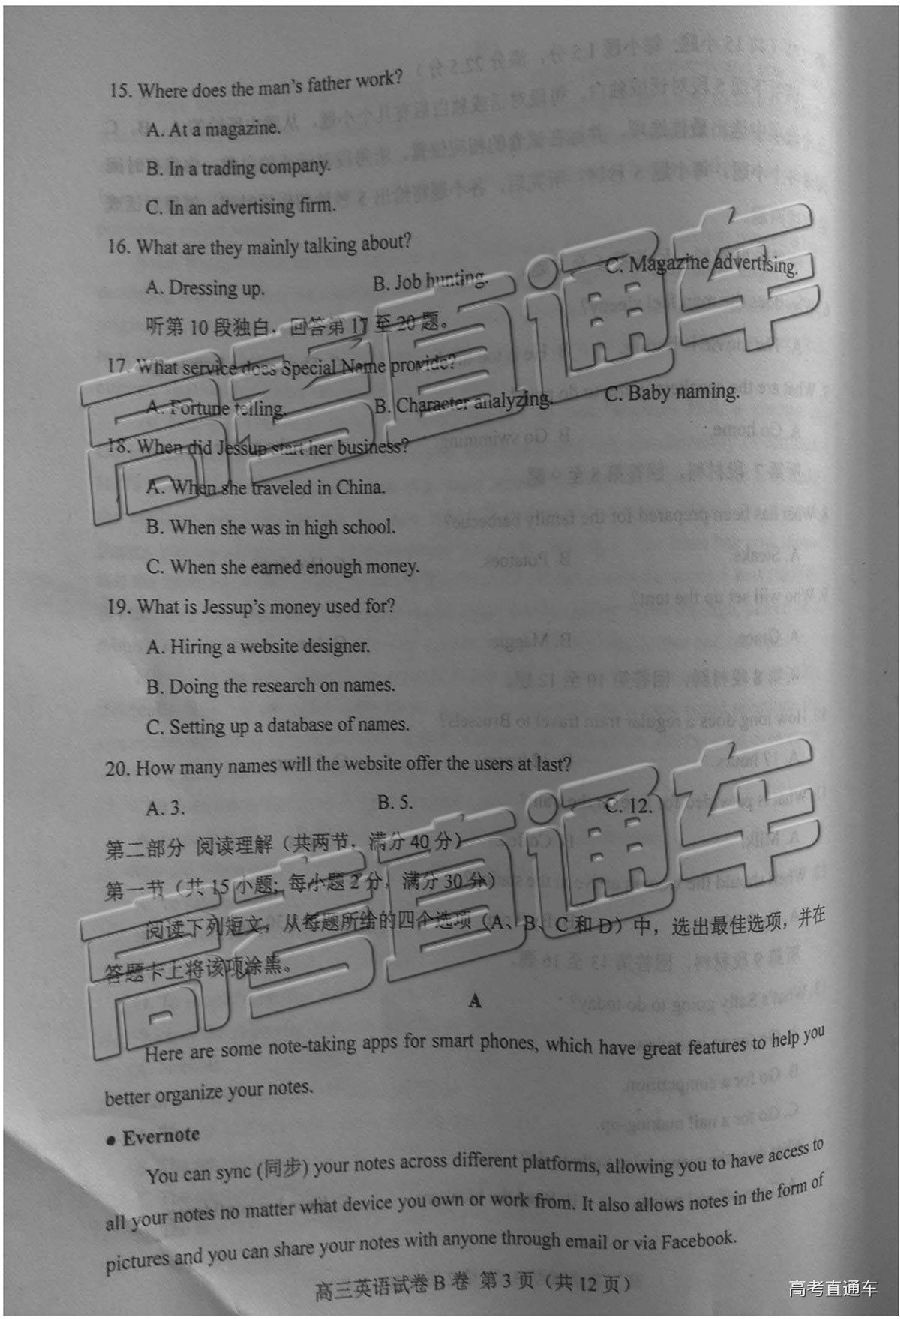 15. Where does the man's father work?
A. At a magazine.
B. In a trading company.
C. In an advertising firm.
16. What are they mainly talking about?
A. Dressing up. B. Job hunting. C. Magazine advertising.
听第 10 段独白，回答第 17 至 20 题。
17. What service does Special Name provide?
A. Fortune telling. B. Character analyzing. C. Baby naming.
18. When did Jessup start her business?
A. When she traveled in China.
B. When she was in high school.
C. When she earned enough money.
19. What is Jessup's money used for?
A. Hiring a website designer.
B. Doing the research on names.
C. Setting up a database of names.
20. How many names will the website offer the users at last?
A. 3. B. 5. C. 12.
第二部分 阅读理解（共两节，满分 40 分）
第一节（共 15 小题; 每小题 2 分，满分 30 分）
阅读下列短文，从每题所给的四个选项（A、B、C 和 D）中，选出最佳选项，并在
答题卡上将该项涂黑。
A
Here are some note-taking apps for smart phones, which have great features to help you
better organize your notes.
● Evernote
You can sync (同步) your notes across different platforms, allowing you to have access to
all your notes no matter what device you own or work from. It also allows notes in the form of
pictures and you can share your notes with anyone through email or via Facebook.
高三英语试卷 B 卷 第 3 页（共 12 页）
高考直通车
高考直通车
高考直通车